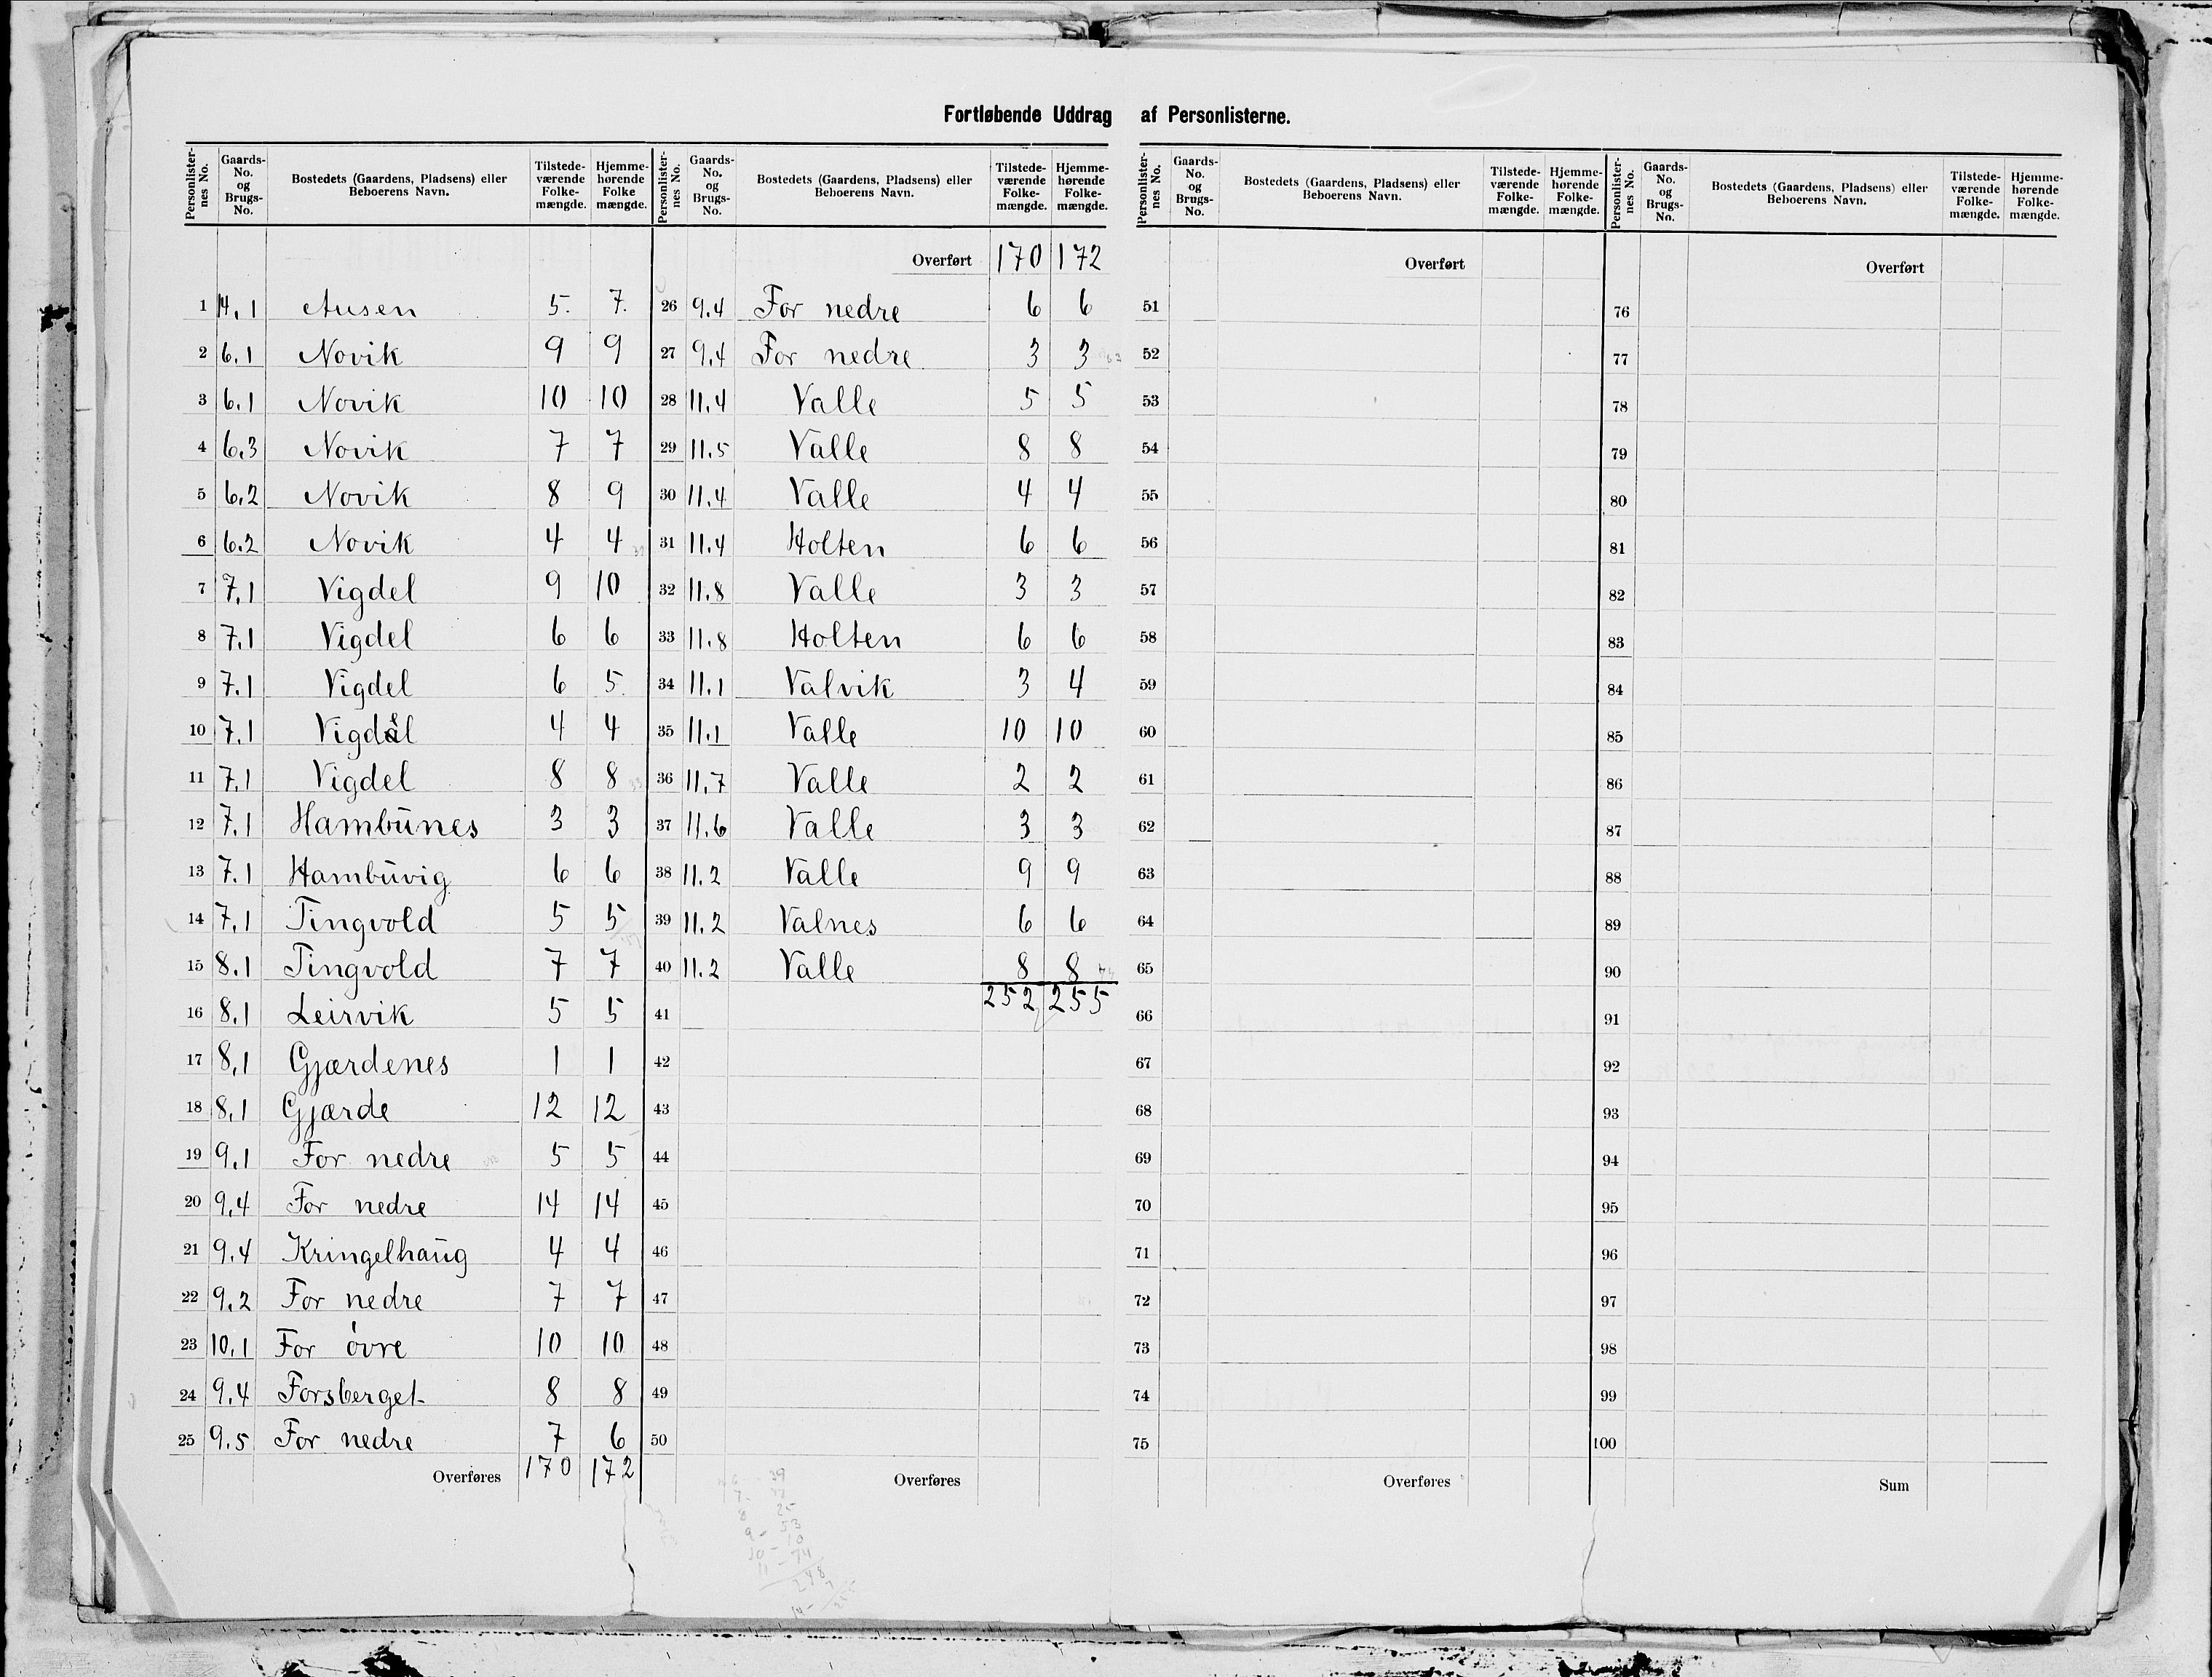 Fortløbende Uddrag af Personlisterne.
Personlister-nes No. Gaards-No. og Brugs-No. Bostedets (Gaardens, Pladsens) eller Beboerens Navn. Tilstede-værende Folke-mængde. Hjemme-hørende Folke mængde.
1 4.1 Ausen 5. 7.
2 6.1 Novik 9 9
3 6.1 Novik 10 10
4 6.3 Novik 7 7
5 6.2 Novik 8 9
6 6.2 Novik 4 4
7 7.1 Vigdel 9 10
8 7.1 Vigdel 6 6
9 7.1 Vigdel 6 5
10 7.1 Vigdel 4 4
11 7.1 Vigdel 8 8
12 7.1 Hambūnes 3 3
13 7.1 Hambūvig 6 6
14 7.1 Tingvold 5 5
15 8.1 Tingvold 7 7
16 8.1 Leirvik 5 5
17 8.1 Gjærdenes 1 1
18 8.1 Gjærde 12 12
19 9.1 For nedre 5 5
20 9.4 For nedre 14 14
21 9.4 Kringelhaūg 4 4
22 9.2 For nedre 7 7
23 10.1 For óvre 10 10
24 9.4 Forsberget 8 8
25 9.5 For nedre 7 6
Overføres 170 172
Personlister-nes No. Gaards-No. og Brugs-No. Bostedets (Gaardens, Pladsens) eller Beboerens Navn. Tilstede-værende Folke-mængde. Hjemme-hørende Folke-mængde.
Overført 170 172
26 9.4 For nedre 6 6
27 9.4 For nedre 3 3
28 11.4 Valle 5 5
29 11.5 Valle 8 8
30 11.4 Valle 4 4
31 11.4 Holten 6 6
32 11.8 Valle 3 3
33 11.8 Holten 6 6
34 11.1 Valvik 3 4
35 11.1 Valle 10 10
36 11.7 Valle 2 2
37 11.6 Valle 3 3
38 11.2 Valle 9 9
39 11.2 Valnes 6 6
40 11.2 Valle 8 8
252 255
41
42
43
44
45
46
47
48
49
50
Overføres
Personlister-nes No. Gaards-No. og Brugs-No. Bostedets (Gaardens, Pladsens) eller Beboerens Navn. Tilstede-værende Folke-mængde. Hjemme-hørende Folke-mængde.
Overført
51
52
53
54
55
56
57
58
59
60
61
62
63
64
65
66
67
68
69
70
71
72
73
74
75
Overføres
Personlister-nes No. Gaards-No. og Brugs-No. Bostedets (Gaardens, Pladsens) eller Beboerens Navn. Tilstede-værende Folke-mængde. Hjemme-hørende Folke-mængde.
Overført
76
77
78
79
80
81
82
83
84
85
86
87
88
89
90
91
92
93
94
95
96
97
98
99
100
Sum
39
25
9 - 53
10 - 10
11 - 74
248